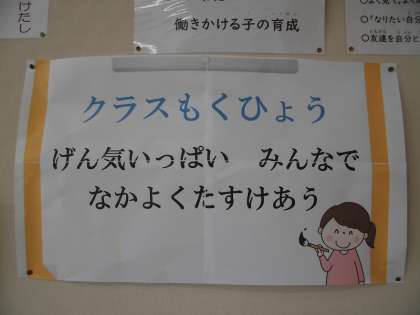 けだし
働きかける子の育成
○「なりたい自分
○友達を自分と
クラスもくひょう
げん気いっぱい　みんなで
なかよくたすけあう